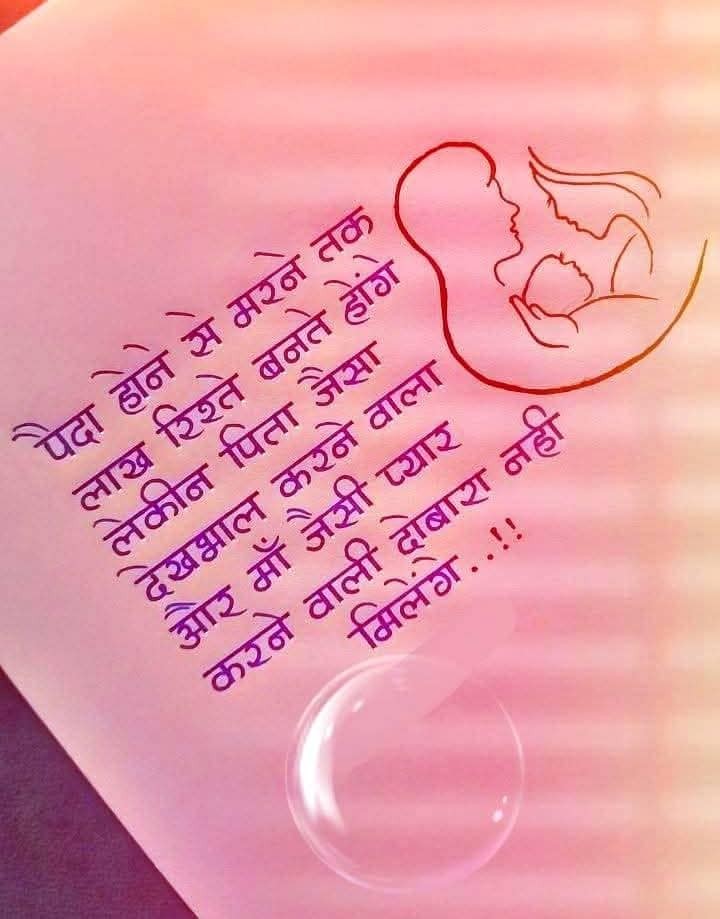 पैदा होने से मरने तक
लाख रिश्ते बनते होंगे
लेकीन पिता जैसा
देखभाल करने वाला
और माँ जैसी प्यार
करने वाली दोबारा नही
मिलेंगे..!!